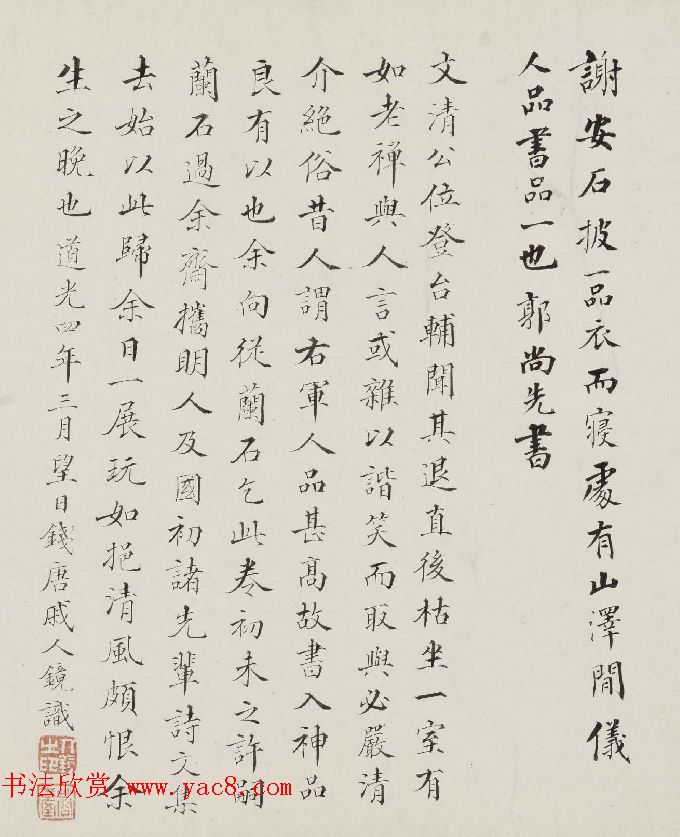 謝安石披一品衣而寢處有山澤間儀
人品書品一也郭尚先書
文清公位登台輔聞其退直後枯坐一室有
如老禪與人言或雜以諧笑而取與必嚴清
介絕俗昔人謂右軍人品甚高故書入神品
良有以也余向從蘭石乞此卷初未之許嗣
蘭石過余齋攜明人及國初諸先輩詩文集
去始以此歸余日一展玩如挹清風頗恨余
生之晚也道光四年三月望日錢唐戚人鏡識
书法欣赏 www.yac8.com